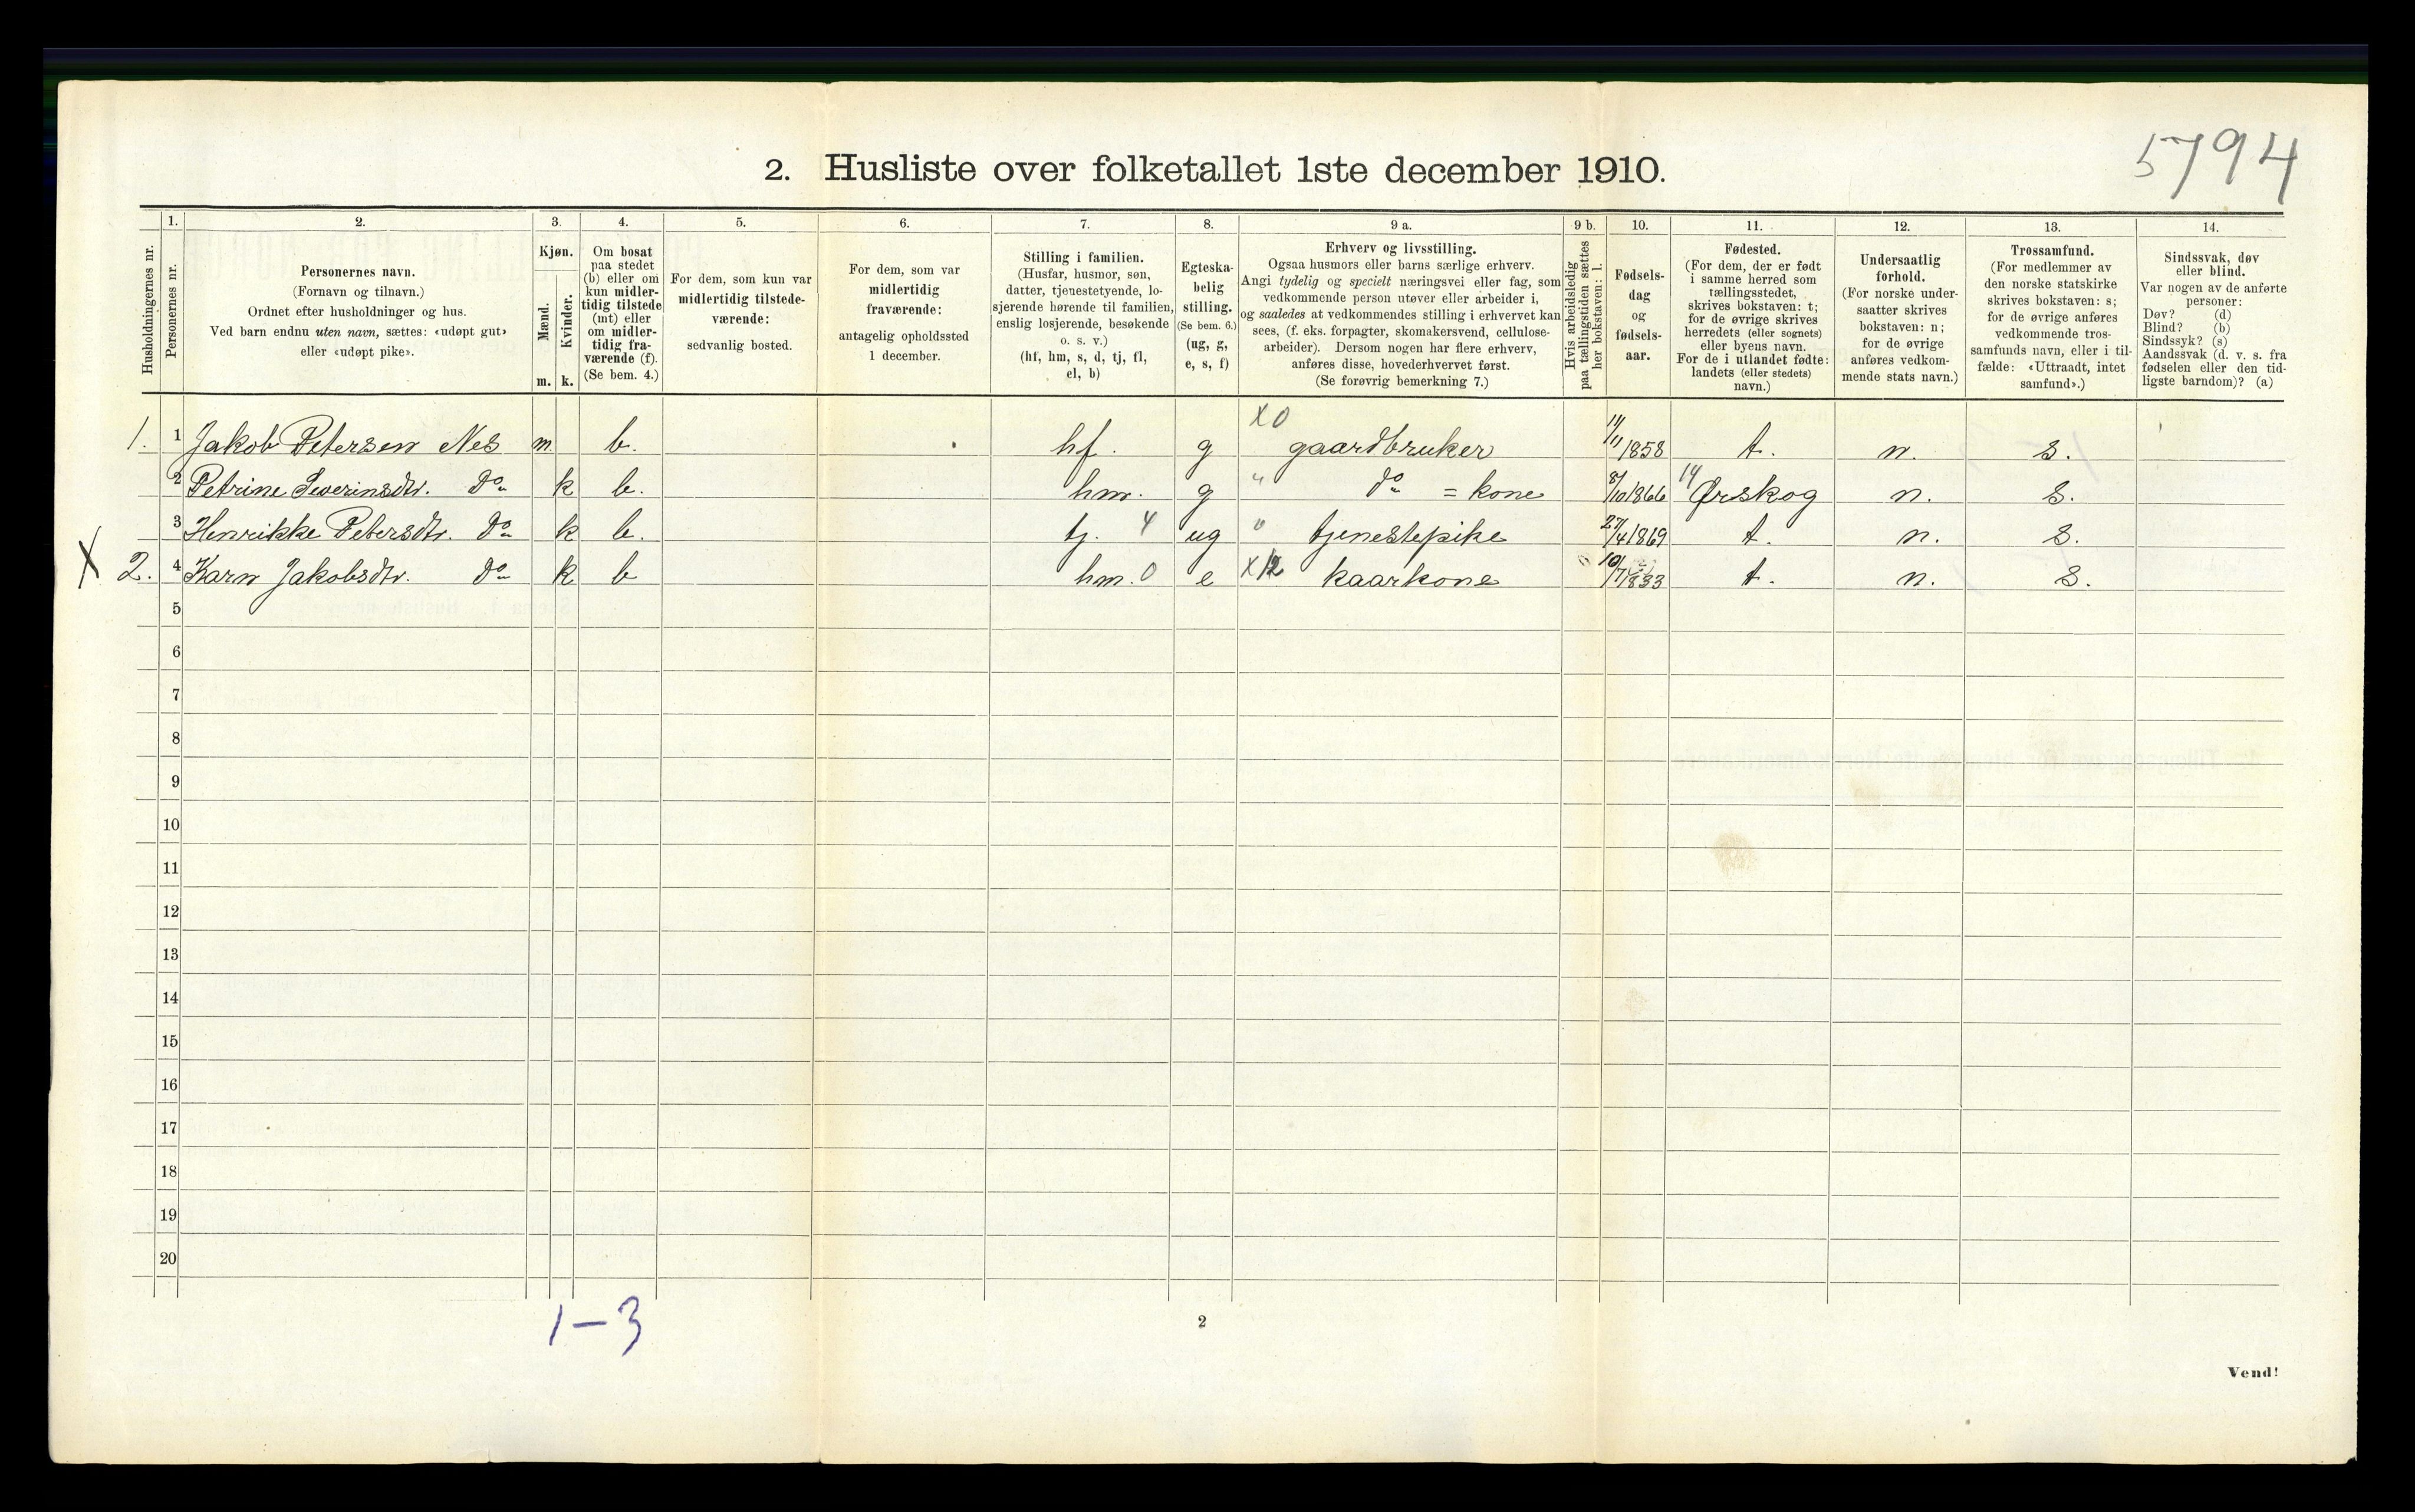 5794
2. Husliste over folketallet 1ste december 1910.
Husholdningernes nr.
1.
Personernes nr.
2.
Personernes navn.
(Fornavn og tilnavn.)
Ordnet efter husholdninger og hus.
Ved barn endnu uten navn, sættes: «udøpt gut»
eller «udøpt pike».
3.
Kjøn.
Mænd.
Kvinder.
m. k.
4.
Om bosat
paa stedet
(b) eller om
kun midler-
tidig tilstede
(mt) eller
om midler-
tidig fra-
værende (f).
(Se bem. 4.)
5.
For dem, som kun var
midlertidig tilstede-
værende:
sedvanlig bosted.
6.
For dem, som var
midlertidig
fraværende:
antagelig opholdssted
1 december.
7.
Stilling i familien.
(Husfar, husmor, søn,
datter, tjenestetyende, lo-
sjerende hørende til familien,
enslig losjerende, besøkende
o. s. v.)
(hf, hm, s, d, tj, fl,
el, b)
8.
Egteska-
belig
stilling.
(Se bem. 6.)
(ug, g,
e, s, f)
9 a.
Erhverv og livsstilling.
Ogsaa husmors eller barns særlige erhverv.
Angi tydelig og specielt næringsvei eller fag, som
vedkommende person utøver eller arbeider i,
og saaledes at vedkommendes stilling i erhvervet kan
sees, (f. eks. forpagter, skomakersvend, cellulose-
arbeider). Dersom nogen har flere erhverv,
anføres disse, hovederhvervet først.
(Se forøvrig bemerkning 7.)
9 b.
Hvis arbeidsledig
paa tællingstiden sættes
her bokstaven: l.
10.
Fødsels-
dag
og
fødsels-
aar.
11.
Fødested.
(For dem, der er født
i samme herred som
tællingsstedet,
skrives bokstaven: t;
for de øvrige skrives
herredets (eller sognets)
eller byens navn.
For de i utlandet fødte:
landets (eller stedets)
navn.)
12.
Undersaatlig
forhold.
(For norske under-
saatter skrives
bokstaven: n;
for de øvrige
anføres vedkom-
mende stats navn.)
13.
Trossamfund.
(For medlemmer av
den norske statskirke
skrives bokstaven: s;
for de øvrige anføres
vedkommende tros-
samfunds navn, eller i til-
fælde: «Uttraadt, intet
samfund».)
14.
Sindssvak, døv
eller blind.
Var nogen av de anførte
personer:
Døv? (d)
Blind? (b)
Sindssyk? (s)
Aandssvak (d. v. s. fra
fødselen eller den tid-
ligste barndom)? (a)
1. 1 Jakob Petersen Nes m. b. hf. g X0 gaardbruker 11/11 1858 t. n. s.
2 Petrine Severinsdtr. do k b. hm. g " do = kone 8/10 1866 14 Ørskog n. s.
3 Henrikke Petersdtr. do k b. tj. 4 ug " tjenestepike 27/4 1869 t. n. s.
X 2. 4 Karn Jakobsdtr. do k b hm. 0 e X12 kaarkone 10/7 1833 t. n. s.
5
6
7
8
9
10
11
12
13
14
15
16
17
18
19
20
1-3
2
Vend!